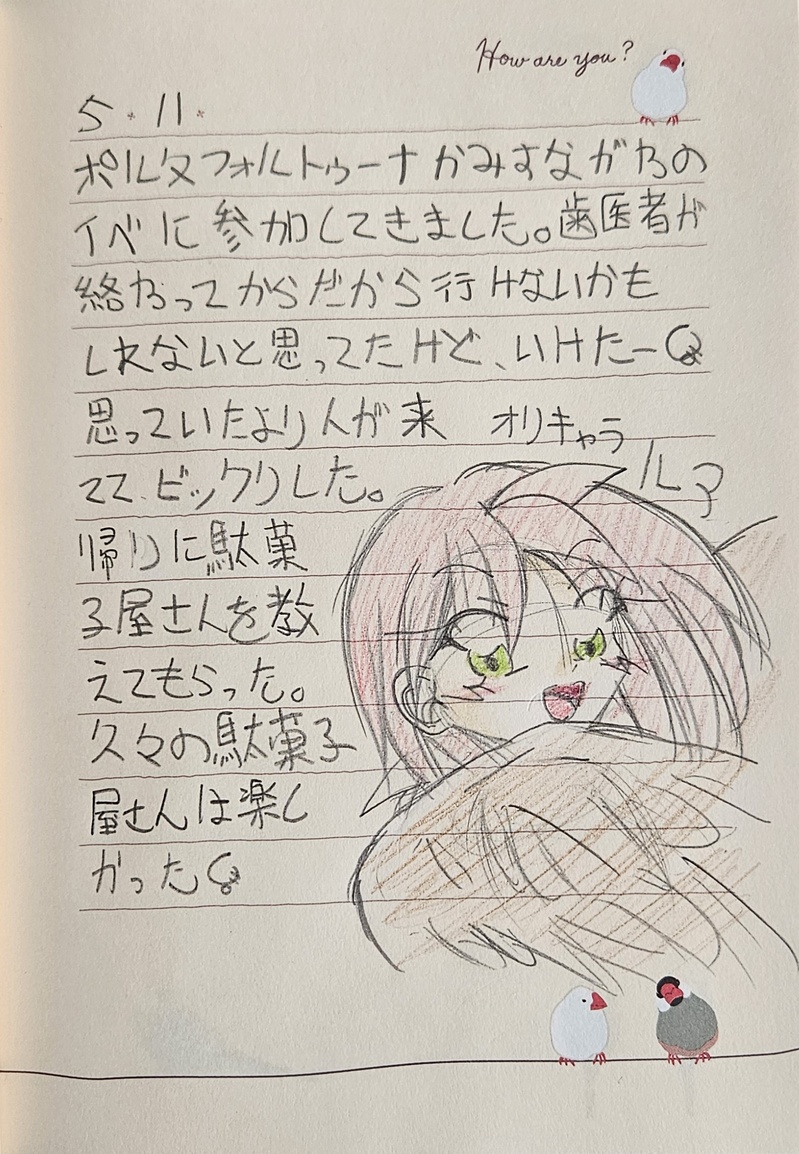 How are you?
5.11.
ポルタフォルトゥーナかみすながわの
イベに参加してきました。歯医者が
終わってからだから行けないかも
しれないと思ってたけど、いけたー
思っていたより人が来
オリキャラ
ててビックリした。
帰りに駄菓
子屋さんを教
えてもらった。
久々の駄菓子
屋さんは楽し
かった